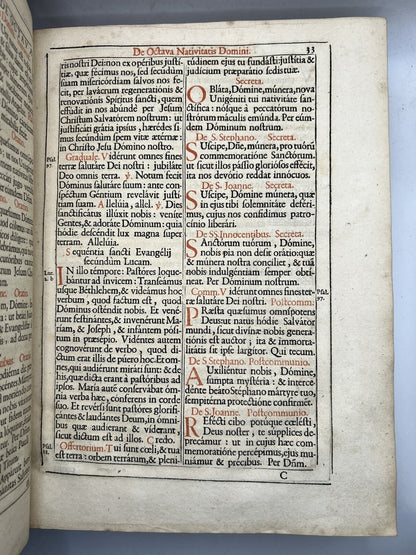 De Octava Nativitatis Domini.
33
ris nostri Dei: non ex opéribus justí-
tiæ, quæ fécimus nos, sed secúndùm
suam misericórdiam salvos nos fecit,
per lavácrum regeneratiónis &
renovatiónis Spíritus sancti, quem
effúdit in nos abundè per Jesum
Christum Salvatórem nostrum: ut
justificáti grátia ipsíus, hærédes si-
mus secúndum spem vitæ ætérnæ:
in Christo Jesu Dómino nostro.
Graduale. Vidérunt omnes fines
Psal.
97.
terræ salutáre Dei nostri: jubiláte
Deo omnis terra. ℣. Notum fecit
Dóminus salutáre suum: ante con-
spéctum Géntium revelávit justí-
tiam suam. Allelúia, allel. ℣. Dies
sanctificátus illúxit nobis: venite
Gentes, & adoráte Dóminum: quia
hódie descéndit lux magna super
terram. Allelúia.
Sequéntia sancti Evangélij
secúndum Lucam.
Luc.
2. b
IN illo témpore: Pastóres loque-
bántur ad ínvicem: Transeámus
usque Béthlehem, & videámus hoc
verbum, quod factum est, quod
Dóminus osténdit nobis. Et vené-
runt festinántes, & invenérunt Ma-
ríam, & Joseph, & infántem pósi-
tum in præsépio. Vidéntes autem
cognovérunt de verbo, quod di-
ctum erat illis de púero hoc. Et om-
nes, qui audiérunt miráti sunt: & de
his, quæ dicta erant à pastóribus ad
ipsos. María autē conservábat óm-
nia verba hæc, cónferens in corde
suo. Et revérsi sunt pastóres glorifi-
cántes & laudántes Deum, in ómni-
bus quæ audíerant & víderant,
sicut dictum est ad illos. Credo.
Offertorium. Tui sunt cœli, & tua
Psal.
88.
est terra: orbem terrárum, & pleni-
túdinem ejus tu fundásti: justítia &
judícium præparátio sedis tuæ.
Secreta.
OBláta, Dómine, múnera, nova
Unigéniti tui nativitáte san-
ctífica: nósque à peccatórum no-
strórum máculis emúnda. Per eún-
dem Dóminum nostrum.
De S. Stephano. Secreta.
SUscipe, Dñe, múnera, pro tuórū
commemoratióne Sanctórum.
ut sicut illos pássio gloriósos effécit,
ita nos devótio reddat innócuos.
De S. Joanne. Secreta.
SUscipe, Dómine, múnera, quæ
in ejus tibi solemnitáte deféri-
mus, cujus nos confídimus patro-
cínio liberári.
De SS. Innocentibus. Secreta.
SAnctórum tuórum, Dómine,
nobis pia non desit orátio: quæ
& múnera nostra concíliet, & tuā
nobis indulgéntiam semper obtí-
neat. Per Dóminum nostrum.
Comp. Vidérunt omnes fines ter-
Psal.
97.
ræ salutáre Dei nostri. Postcomm:
PRæsta quǽsumus omnípotens
Deus: ut natus hódie Salvátor
mundi, sicut divínæ nobis generatió-
nis est auctor; ita & immorta-
litátis sit ipse largítor. Qui tecum.
De S. Stephano. Postcommunio.
AUxiliéntur nobis, Dómine,
sumpta mystéria: & intercedé-
dente beáto Stéphano mártyre tuo,
sempitérna protectióne confírmēt.
De S. Joanne. Postcommunio.
REfécti cibo potúque cœlésti,
Deus noster, te súpplices de-
precámur: ut in cujus hæc com-
memoratióne percépimus, ejus mu-
niámur & précibus. Per Dñm.
C